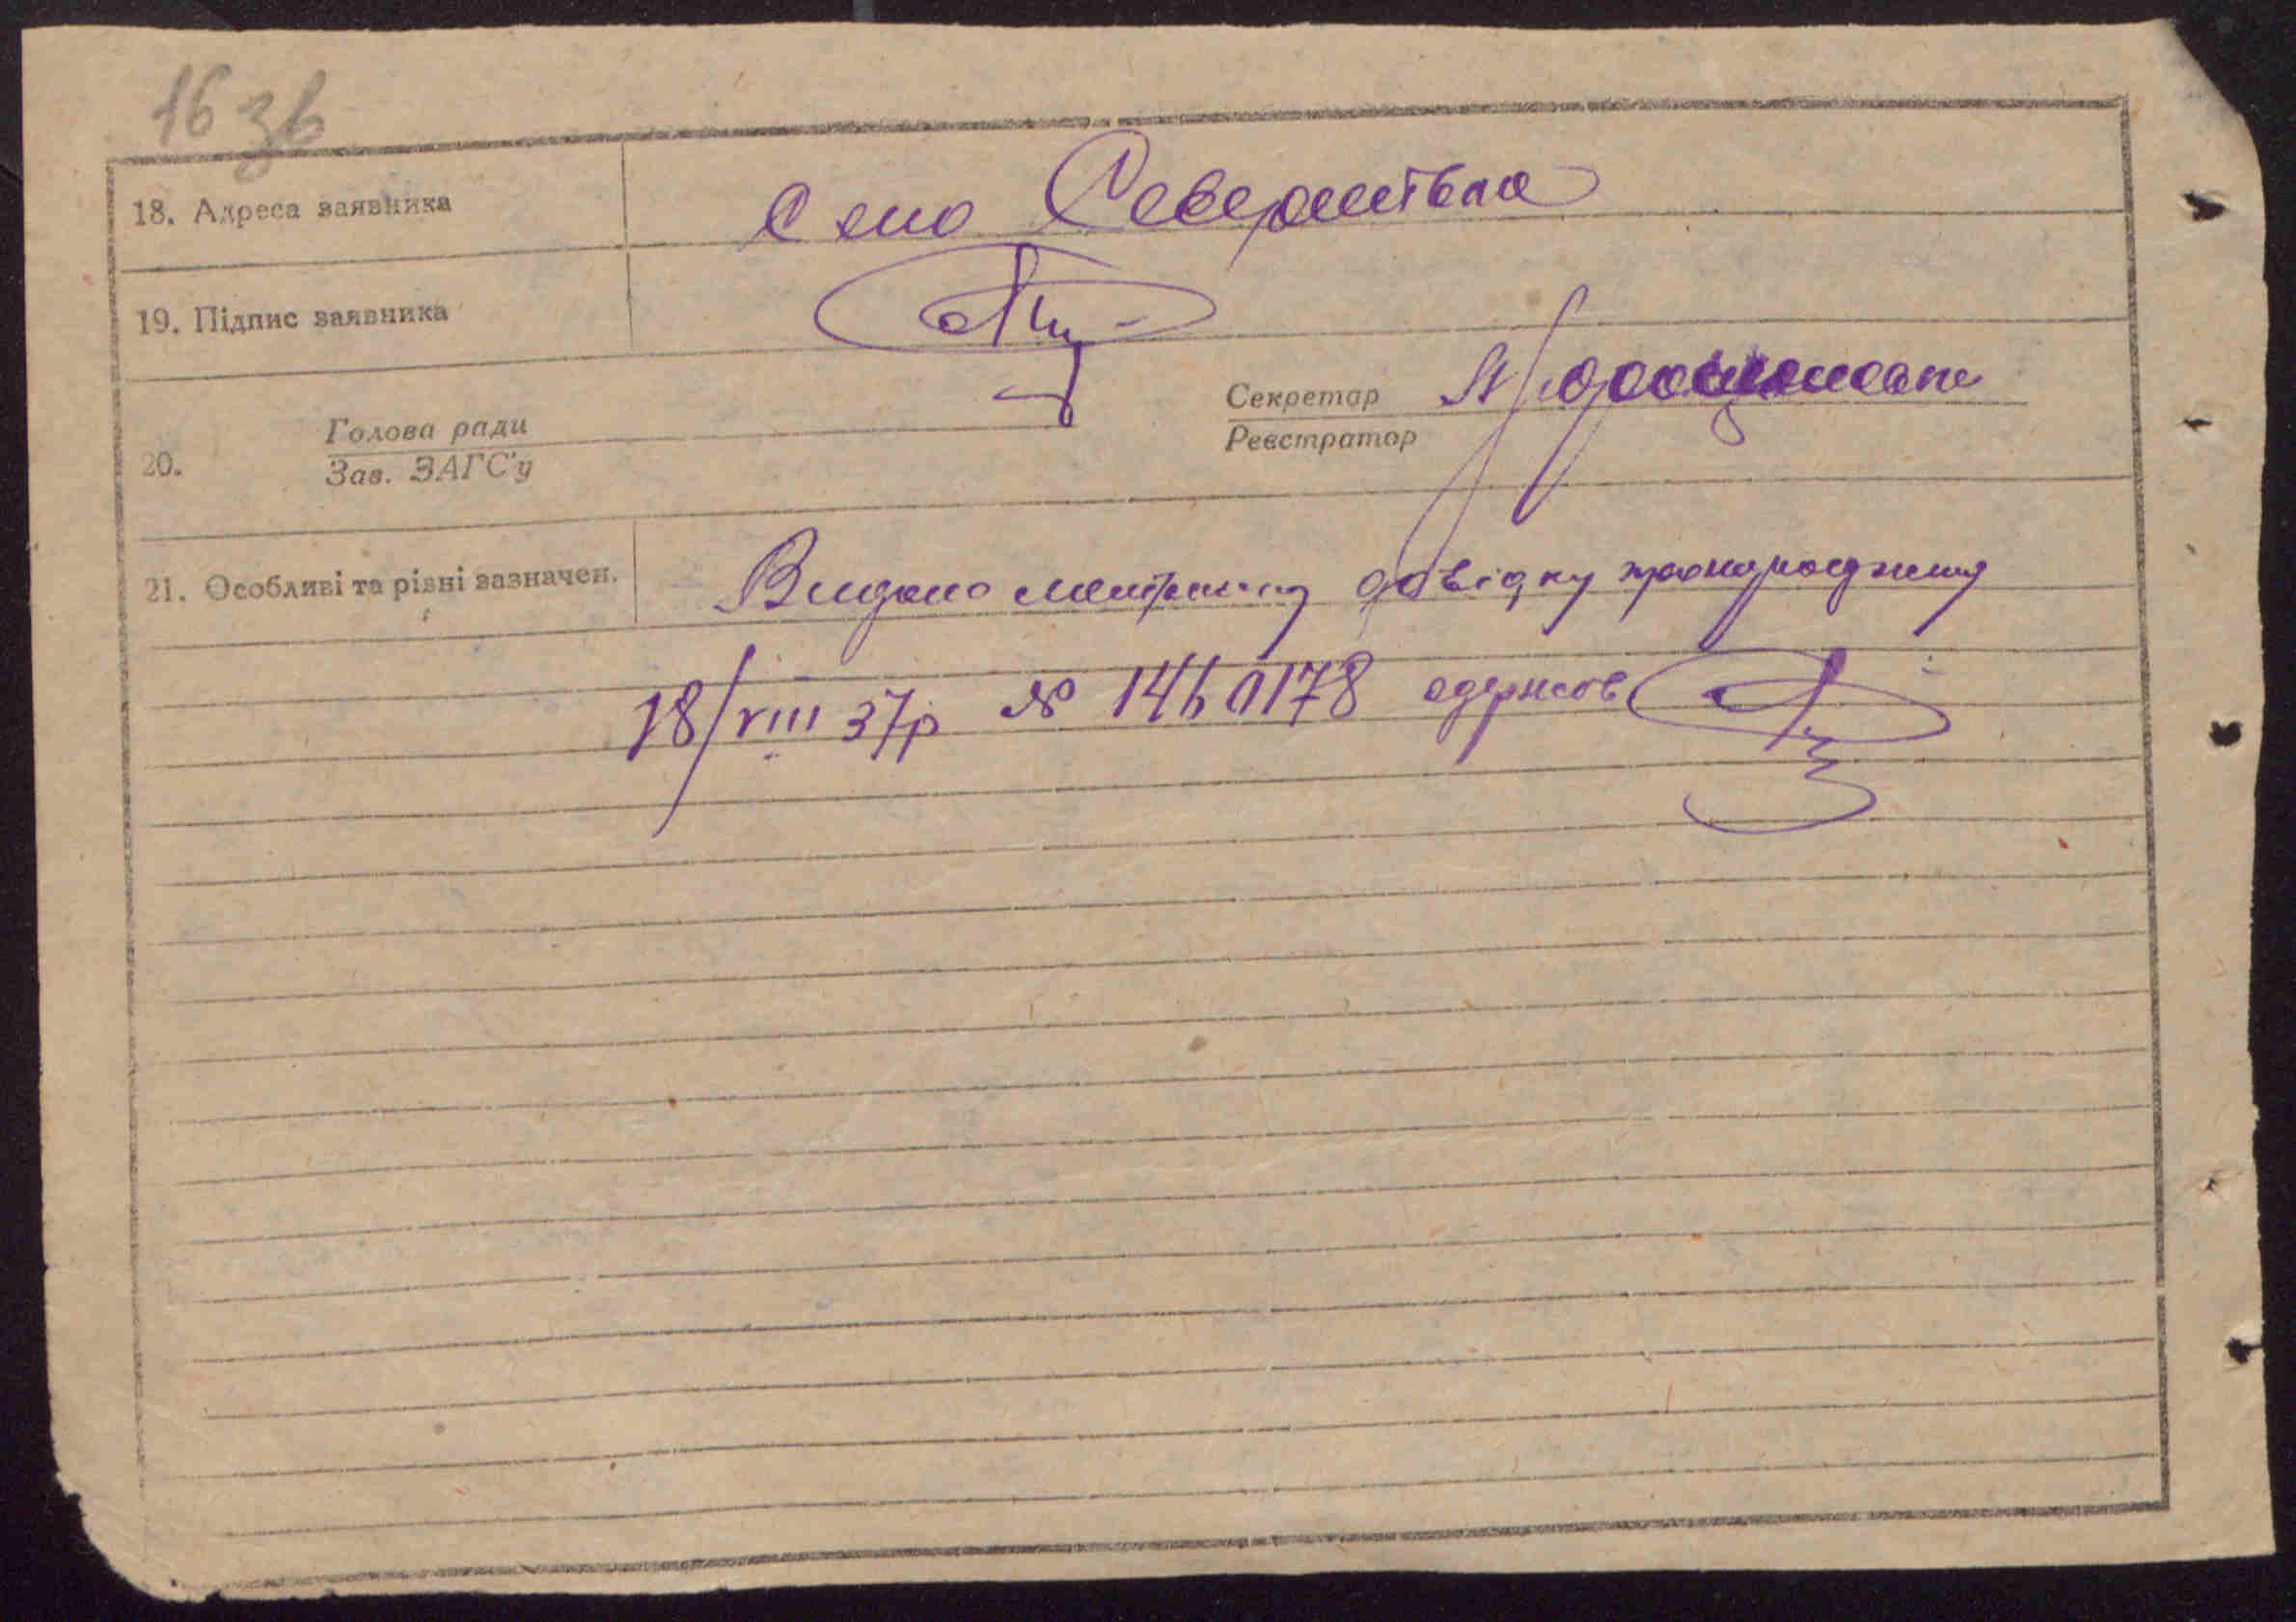 16 зв
18. Адреса заявника Село
19. Підпис заявника
Секретар
Голова ради
Реєстратор
20. Зав. ЗАГС'у
21. Особливі та рівні зазначен. Видано метричну довідку про народження
18/VIII 37р № 146 0178 одержав